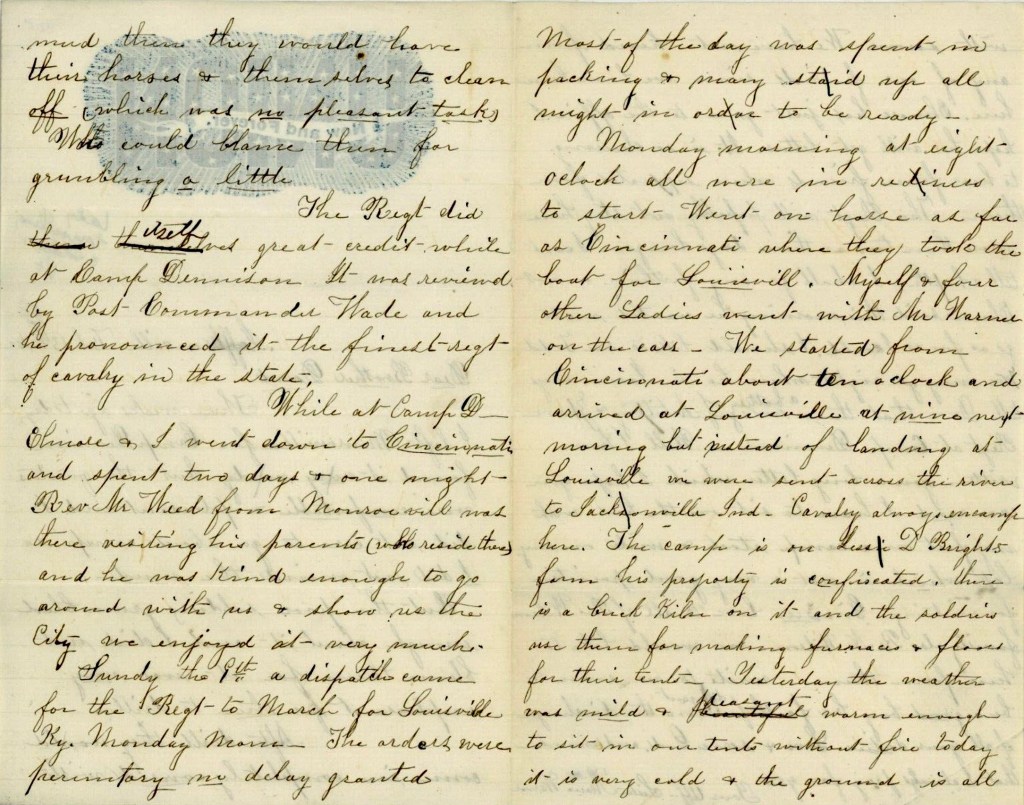 mud then they would have
their horses & them selves to clean
off (which was no pleasant task)
Who could blame them for
grumbling a little
The Regt did
itself great credit while
at Camp Dennison It was reviewd
by Post Commander Wade and
he pronounced it the finest regt
of cavalry in the state,
While at Camp D
Elmore & I went down to Cincinnati
and spent two days & one night
Rev Mr Weed from Monroevill was
there visiting his parents (who reside there)
and he was kind enough to go
around with us & show us the
City we enjoyd it very much.
Sundy the 9th a dispatch came
for the Regt to March for Louisville
Ky. Monday Morn The orders were
peremtory no delay granted
Most of the day was spent in
packing & many staid up all
night in order to be ready
Monday morning at eight
oclock all were in rediness
to start Went on horse as far
as Cincinnati where they took the
boat for Louisvill. Myself & four
other Ladies went with Mr Warner
on the cars We started from
Cincinnati about ten oclock and
arrived at Louisville at nine next
moring but instead of landing at
Louisville we were sent across the river
to Jacksonville Ind Cavalry always encamp
here. The camp is on Jesse D Brights
farm his property is confiscated. there
is a brick kilne on it and the soldiers
use them for making furnaces & floors
for their tents Yesterday the weather
was mild & pleasant warm enough
to sit in our tents without fire today
it is very cold & the ground is all